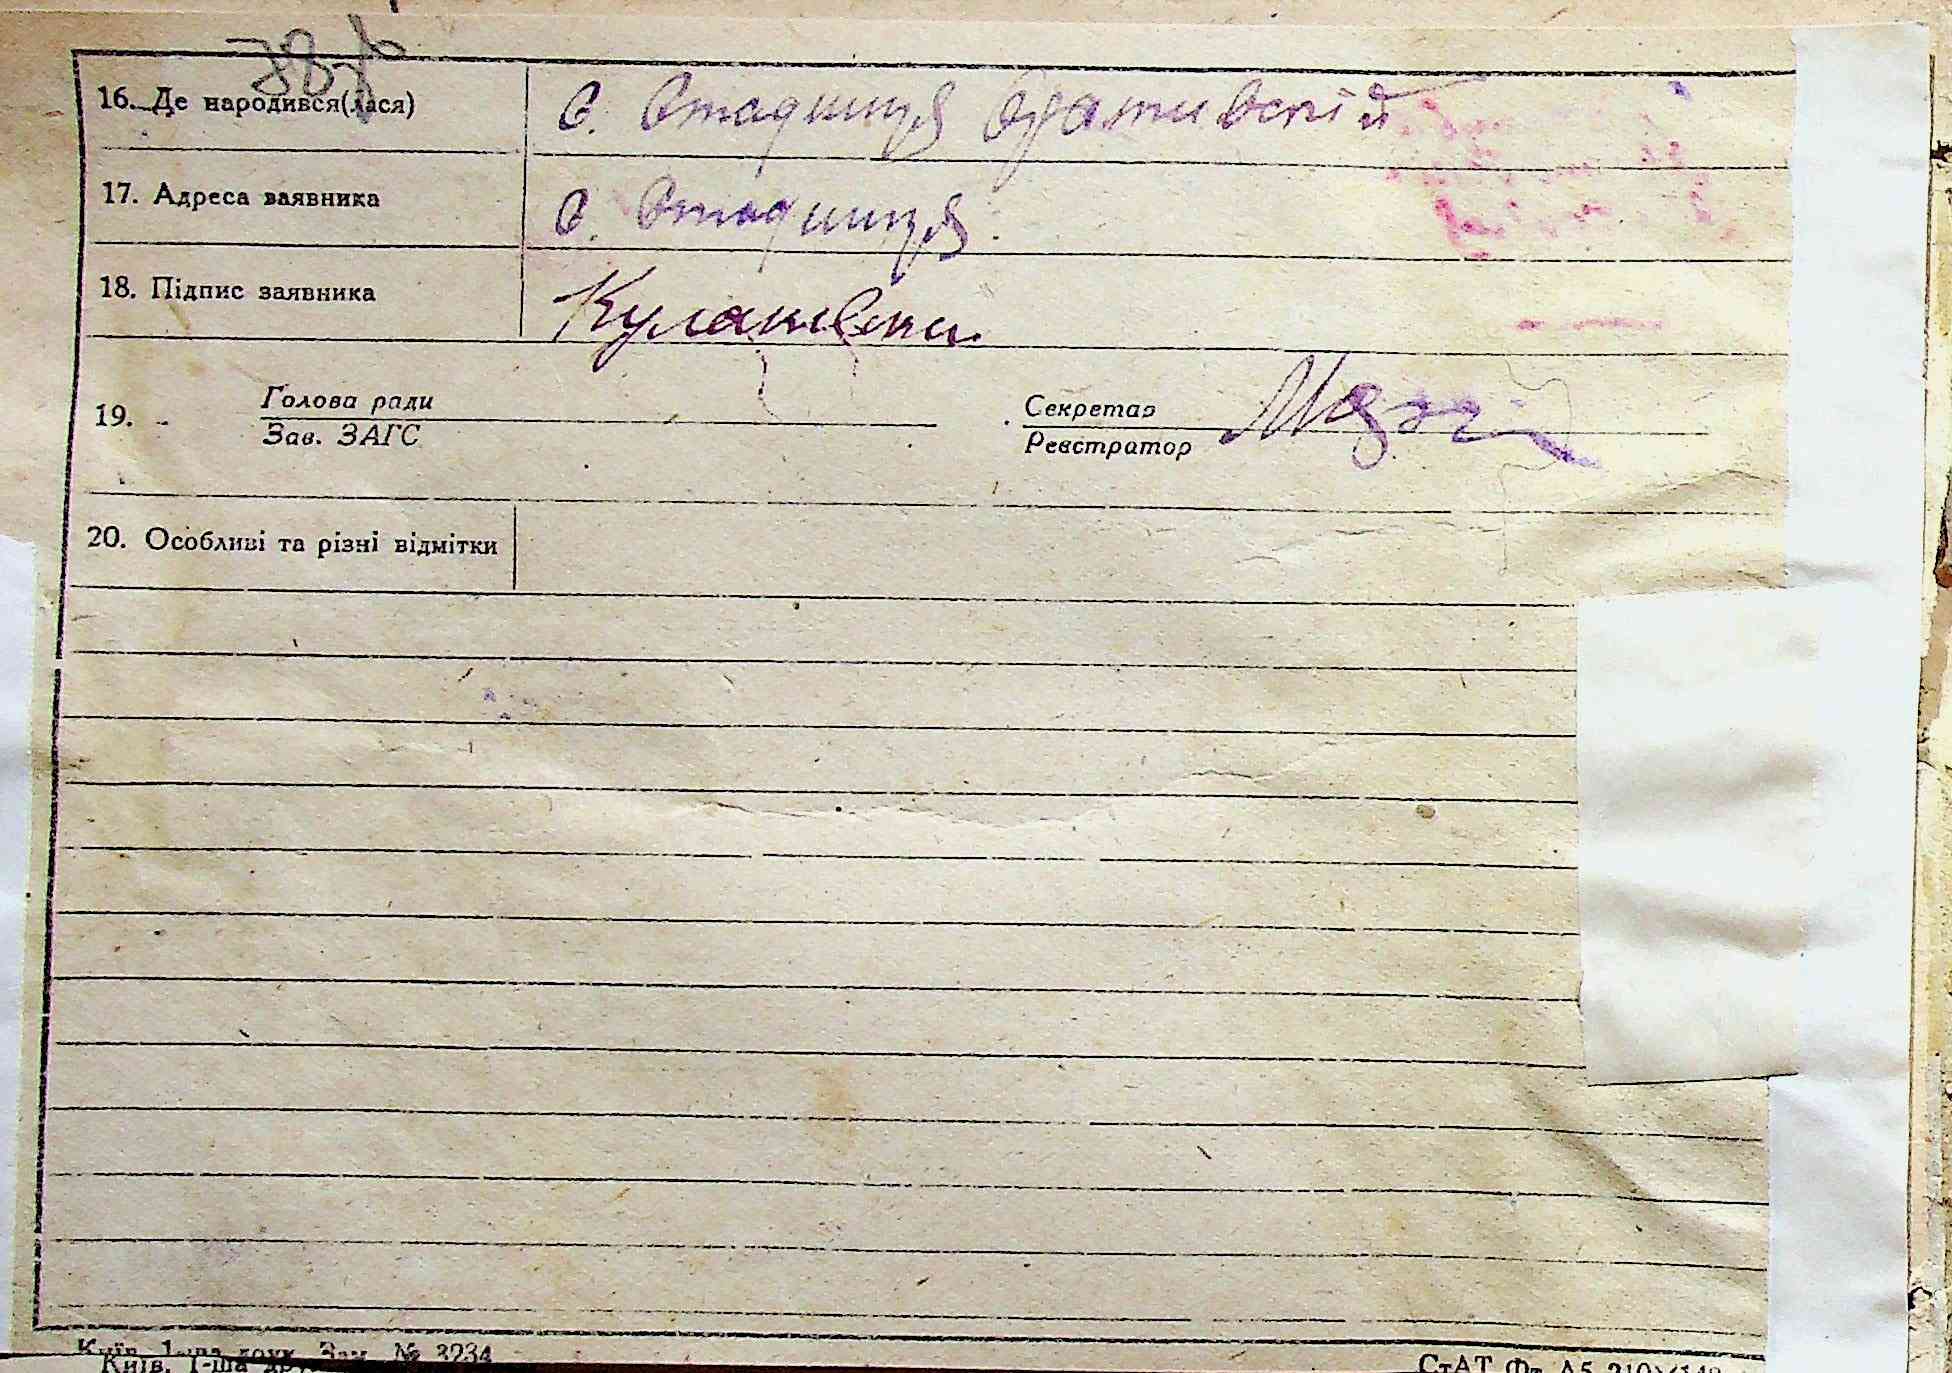 16. Де народився(лася) с. Стадниця
17. Адреса заявника с. Стадниця.
18. Підпис заявника
19. Голова ради Секретар
Зав. ЗАГС Реєстратор
20. Особливі та різні відмітки
Київ, 1-ша друк. Зам. № 3234
Київ, 1-ша СтАТ Фт А5 210×148